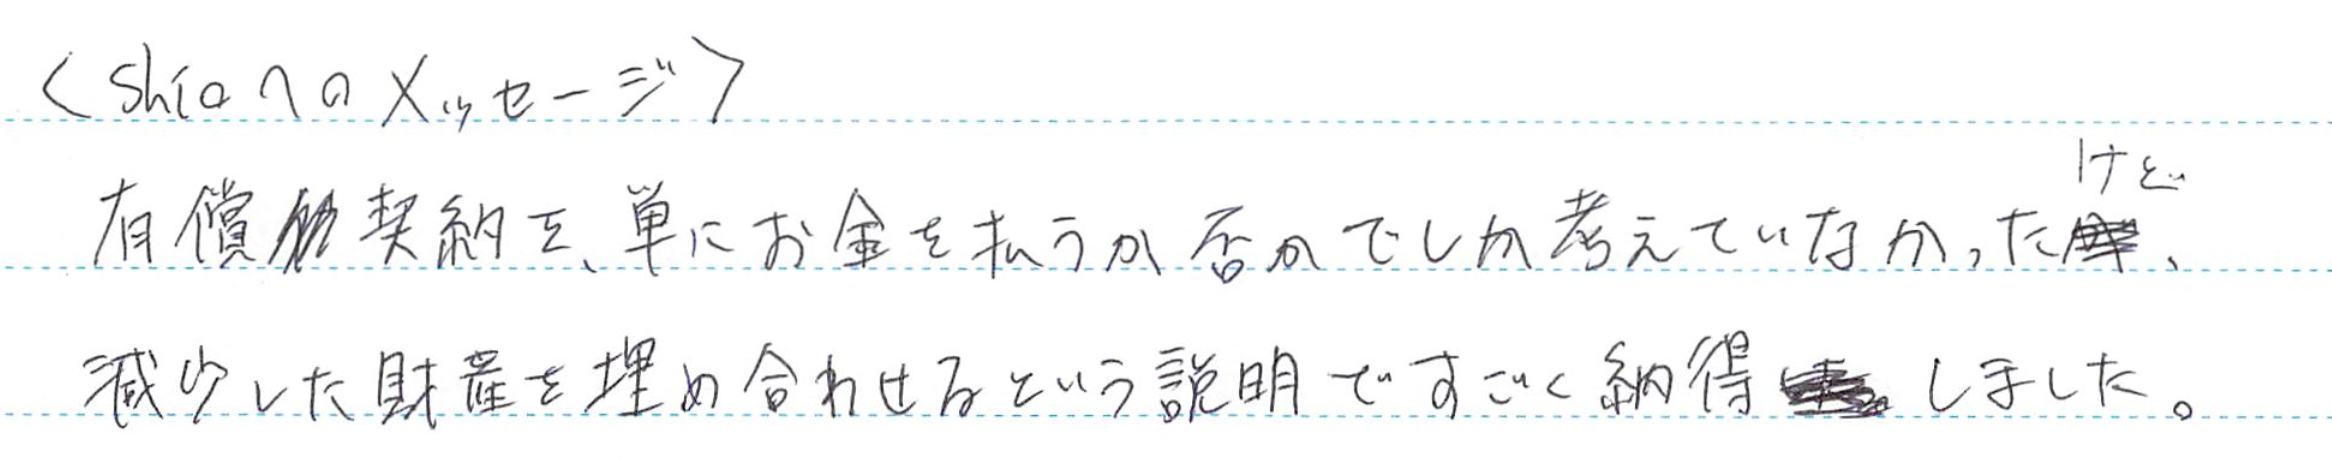 <Shioへのメッセージ>
有償契約を、単にお金を払うか否かでしか考えていなかったけど、
減少した財産を埋め合わせるという説明ですごく納得しました。